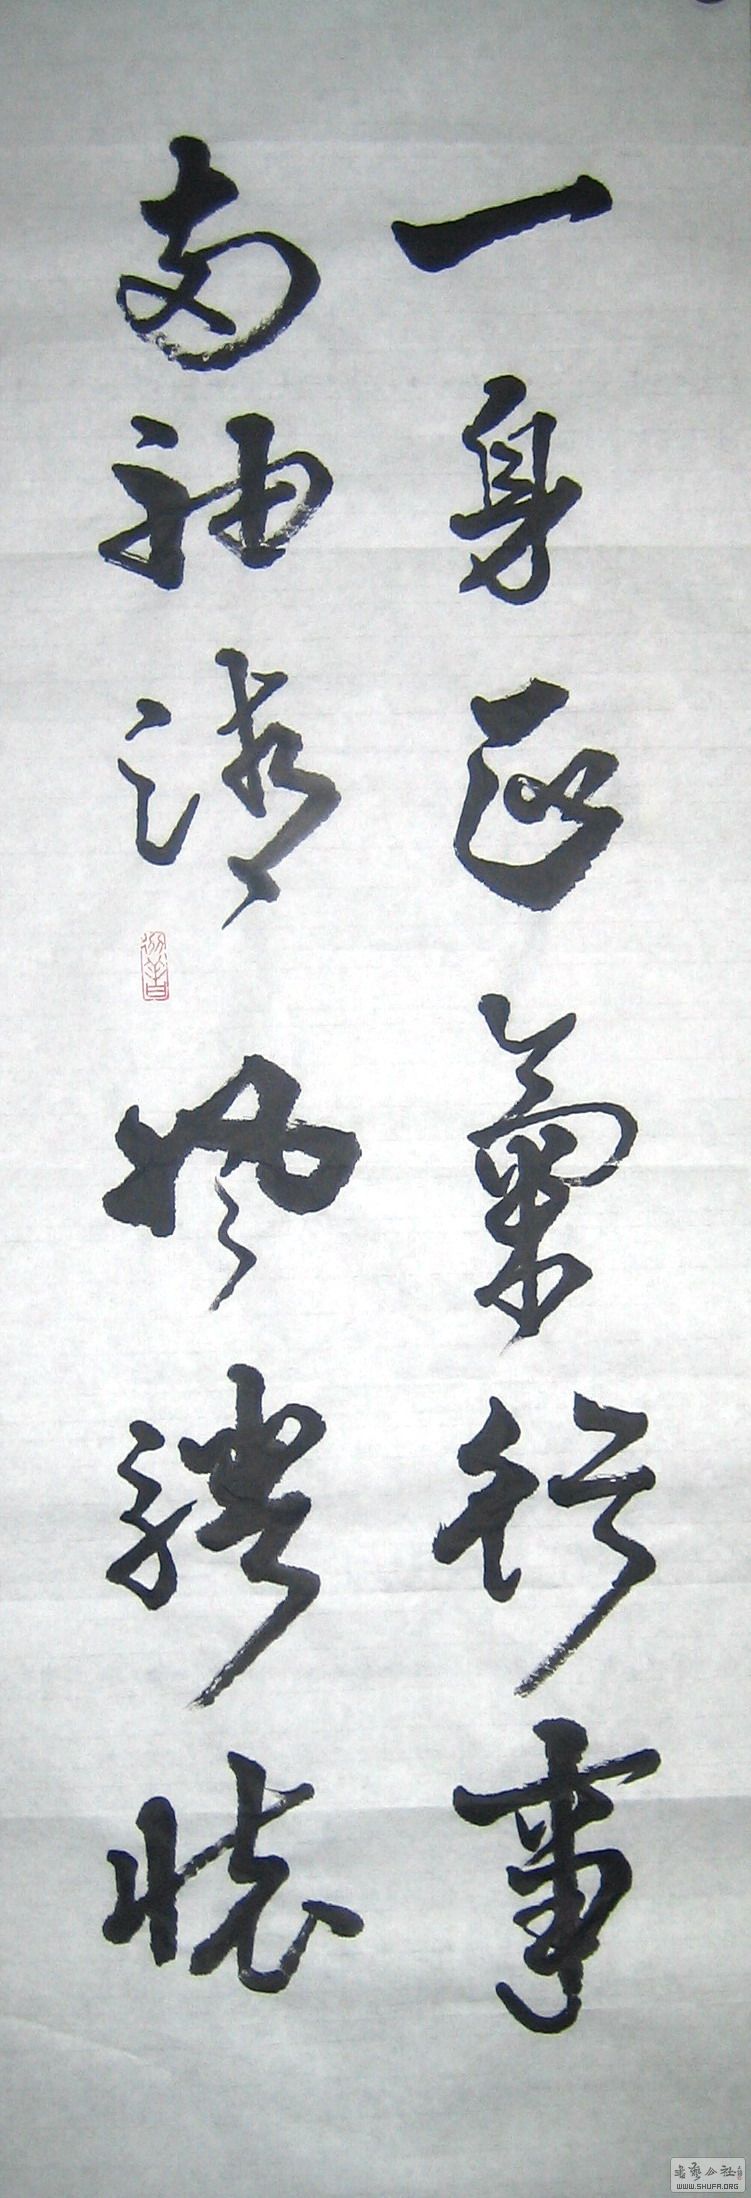 一身正氣行事
两袖清風骋怀
書藝公社
WWW.SHUFA.ORG